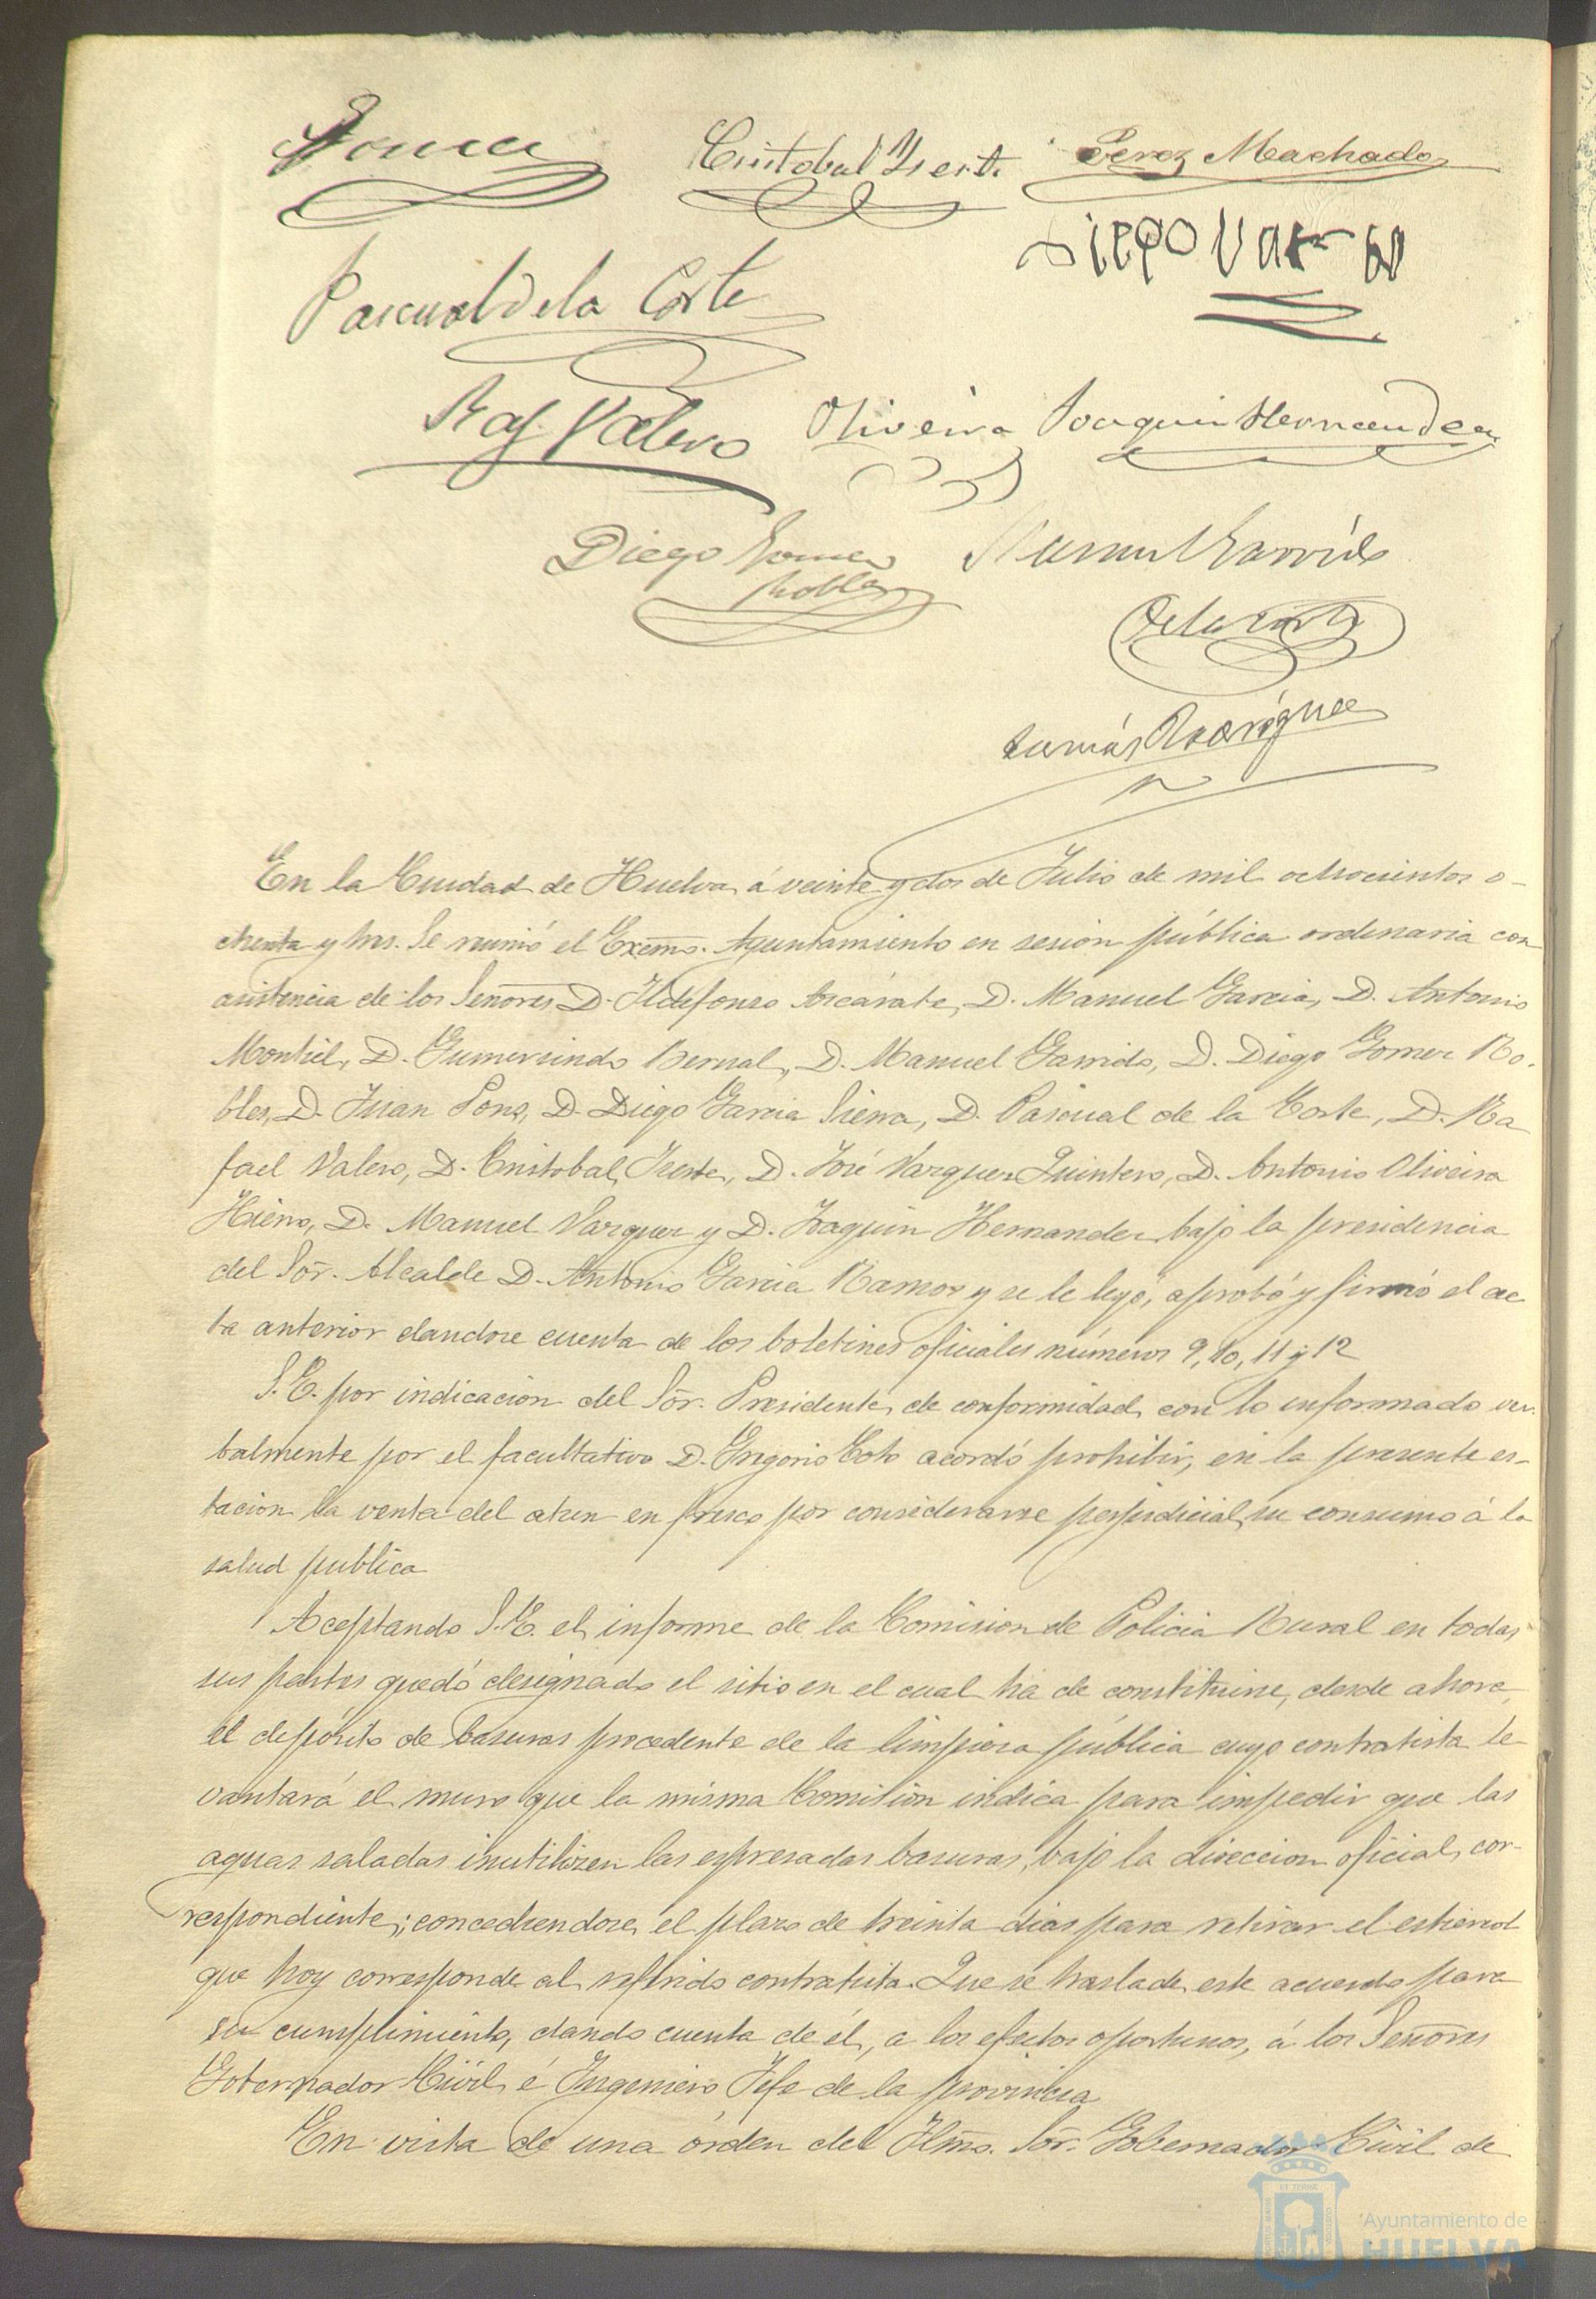 Cristobal
Perez Machado
Diego
Pascual de la Corte
Raf. Valero
Oliveira
Joaquin Hernandez
Diego Gomez
Robles
Manuel Garrido
De la Corte
Tomás Rodriguez
En la Ciudad de Huelva á veinte y dos de Julio de mil ochocientos o-
chenta y tres. Se reunió el Excmo. Ayuntamiento en sesion pública ordinaria con
asistencia de los Señores D. Ildefonso Azcárate, D. Manuel Garcia, D. Antonio
Montiel, D. Gumersindo Bernal, D. Manuel Garrido, D. Diego Gomez Ro-
bles, D. Juan Pons, D. Diego Garcia Sierra, D. Pascual de la Corte, D. Ra
fael Valero, D. Cristobal D. José Vazquez Quintero, D. Antonio Oliveira
Hierro, D. Manuel Vazquez y D. Joaquin Hernandez bajo la presidencia
del Sor. Alcalde D. Antonio Garcia Ramos y se le leyó, aprobó y firmó el ac
ta anterior dandose cuenta de los boletines oficiales números 9, 10, 11 y 12
S. E. por indicacion del Sor. Presidente, de conformidad con lo informado ver-
balmente por el facultativo D. Gregorio Coto acordó prohibir, en la presente es-
tacion la venta del atun en fresco por considerarse perjudicial su consumo á la
salud publica
Aceptando S. E. el informe de la Comision de Policia Rural en todas
sus partes quedó designado el sitio en el cual ha de constituirse, desde ahora,
el depósito de basuras procedente de la limpieza pública cuyo contratista le
vantará el muro que la misma Comision indica para impedir que las
aguas saladas inutilizen las espresadas basuras, bajo la direccion oficial cor-
respondiente; concediendose el plazo de treinta dias para retirar el estiercol
que hoy corresponde al referido contratista. Que se traslade este acuerdo para
su cumplimiento, dando cuenta de él, a los efectos oportunos, á los Señores
Gobernador Civil é Ingeniero Jefe de la provincia
En vista de una órden del Ilmo. Sor. Gobernador Civil de
Ayuntamiento de
HUELVA